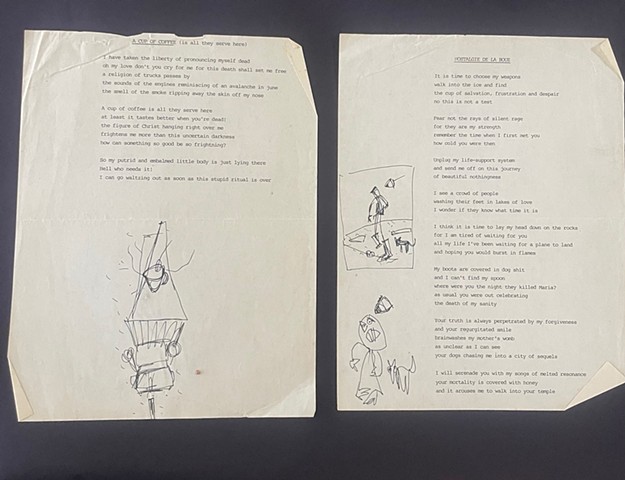 A CUP OF COFFEE (is all they serve here)
I have taken the liberty of pronouncing myself dead
oh my love don't you cry for me for this death shall set me free
a religion of trucks passes by
the sounds of the engines reminiscing of an avalanche in june
the smell of the smoke ripping away the skin off my nose
A cup of coffee is all they serve here
at least it tastes better when you're dead!
the figure of Christ hanging right over me
frightens me more than this uncertain darkness
how can something so good be so frightning?
So my putrid and embalmed little body is just lying there
Hell who needs it!
I can go waltzing out as soon as this stupid ritual is over
NOSTALGIE DE LA BOUE
It is time to choose my weapons
walk into the ice and find
the cup of salvation, frustration and despair
no this is not a test
Fear not the rays of silent rage
for they are my strength
remember the time when I first met you
how cold you were then
Unplug my life-support system
and send me off on this journey
of beautiful nothingness
I see a crowd of people
washing their feet in lakes of love
I wonder if they know what time it is
I think it is time to lay my head down on the rocks
for I am tired of waiting for you
all my life I've been waiting for a plane to land
and hoping you would burst in flames
My boots are covered in dog shit
and I can't find my spoon
where were you the night they killed Maria?
as usual you were out celebrating
the death of my sanity
Your truth is always perpetrated by my forgiveness
and your regurgitated smile
brainwashes my mother's womb
as unclear as I can see
your dogs chasing me into a city of sequels
I will serenade you with my songs of melted resonance
your mortality is covered with honey
and it arouses me to walk into your temple